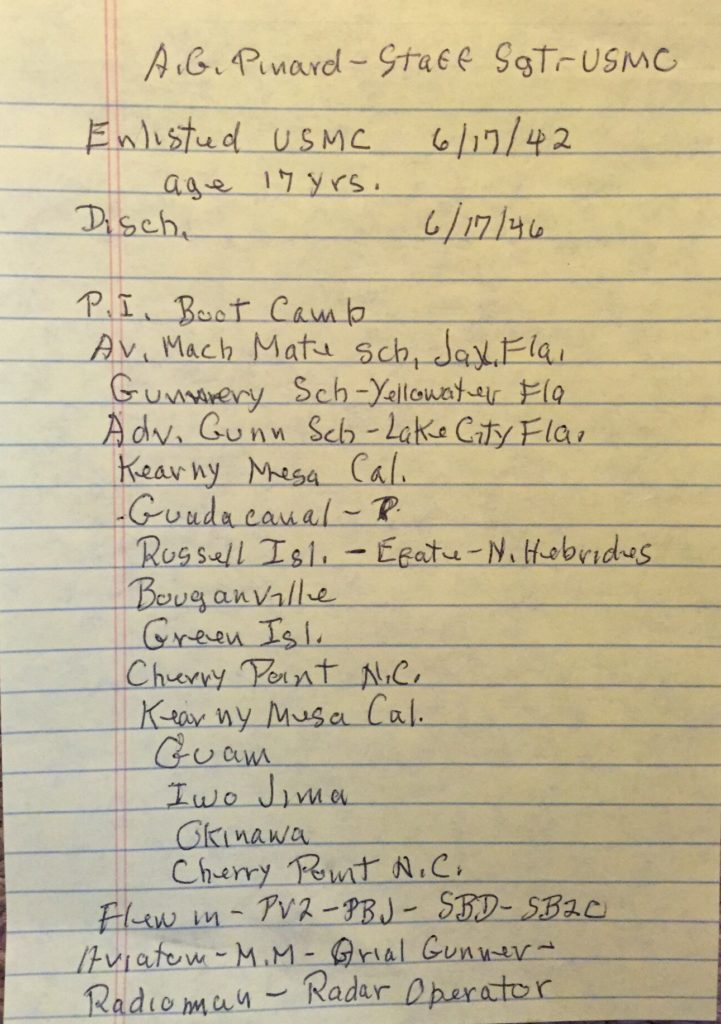 A.G. Pinard - Staff Sgt - USMC
Enlisted USMC 6/17/42
age 17 yrs.
Disch. 6/17/46
P.I. Boot Camp
Av. Mach Mate Sch, Jax, Fla.
Gunnery Sch - Yellowater Fla
Adv. Gunn Sch - Lake City Fla.
Kearny Mesa Cal.
- Guadacanal -
Russell Isl. - Efate - N. Hebrides
Bouganville
Green Isl.
Cherry Point N.C.
Kearny Mesa Cal.
Guam
Iwo Jima
Okinawa
Cherry Point N.C.
Flew in - PV2 - PBJ - SBD - SB2C
Aviation - M.M - Arial Gunner -
Radioman - Radar Operator